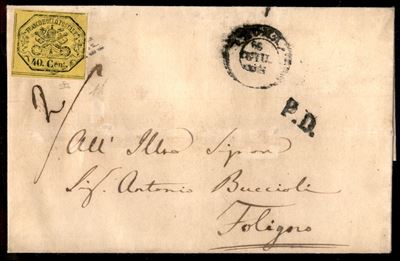 FRANCO BOLLO POSTALE
40 Cent.
2/
P.D.
All' Illmo Signore
Sig. Antonio Buccioli
Foligno